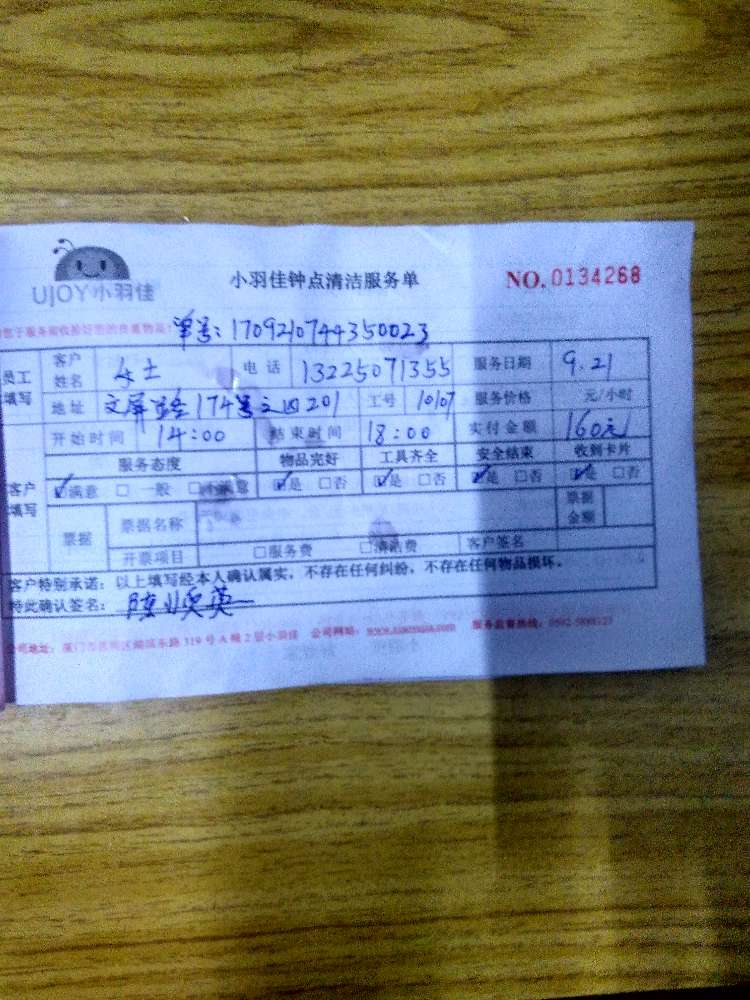 UJOY小羽佳 小羽佳钟点清洁服务单 NO.0134268
单号：1709210744350023
员工填写 客户姓名 女士 电话 13225071355 服务日期 9.21
地址 文屏路174号之四201 工号 10107 服务价格 元/小时
开始时间 14:00 结束时间 18:00 实付金额 160元
服务态度 物品完好 工具齐全 安全结束 收到卡片
客户填写 ☑满意 □一般 □不满意 ☑是 □否 ☑是 □否 ☑是 □否 ☑是 □否
票据 票据名称 票据金额
开票项目 □服务费 □清洁费 客户签名
客户特别承诺：以上填写经本人确认属实，不存在任何纠纷，不存在任何物品损坏。
特此确认签名：
公司地址：厦门市 路319号A幢2层小羽佳 公司网站： 服务监督热线：0592